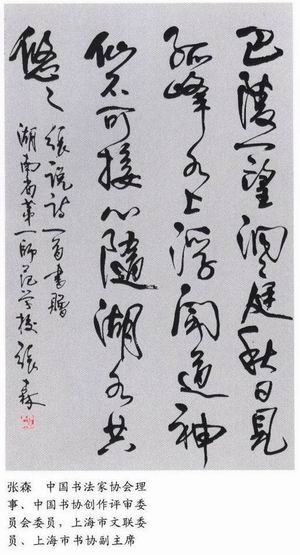 巴陵一望洞庭秋日見
孤峰水上浮聞道神
仙不可接心隨湖水共
悠々
張說詩一首書贈
湖南省第一師范学校 張森
张森　中国书法家协会理
事、中国书协创作评审委
员会委员，上海市文联委
员、上海市书协副主席